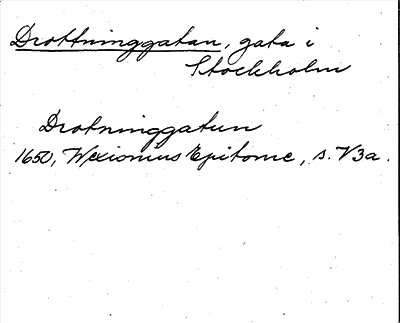 Drottninggatan, gata i
Stockholm
Drotninggatun
1650, Wexionius Epitome, s. V3a.